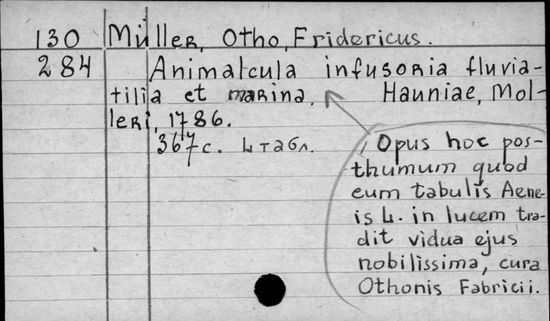 130 Müller, Otho, Fridericus.
284 Animalcula infusoria fluvia-
tilia et marina. Hauniae, Mol-
leri, 1786.
367 с. L табл.
Opus hoc pos-
thumum quod
eum tabulis Aene-
is L. in lucem tra-
dit vidua ejus
nobilissima, cura
Othonis Fabricii.